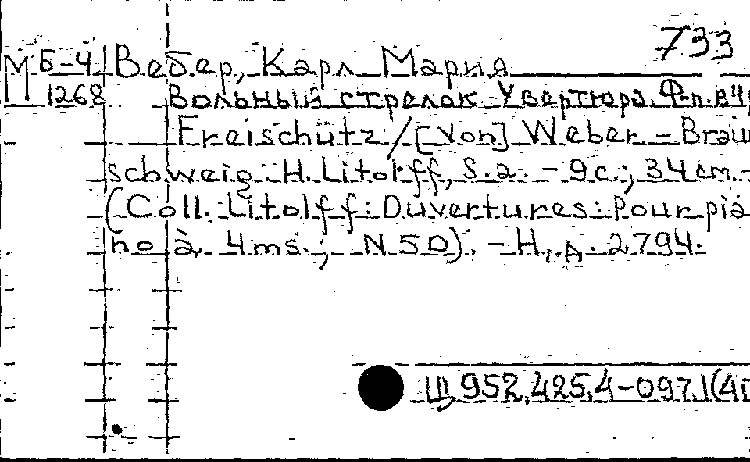 733
М Б-4 Вебер, Карл Мария
1268 Вольный стрелок. Увертюра. Ф-п. в 4
Freischütz / [Von] Weber. - Brau
schweig: H. Litolff, S.a. - 9 c.; 34 cm. -
(Coll. Litolff: Ouvertures: Pour pia
no à 4 ms.; N 50). - Н. д. 2794.
Щ 952.425.4-097.1(4